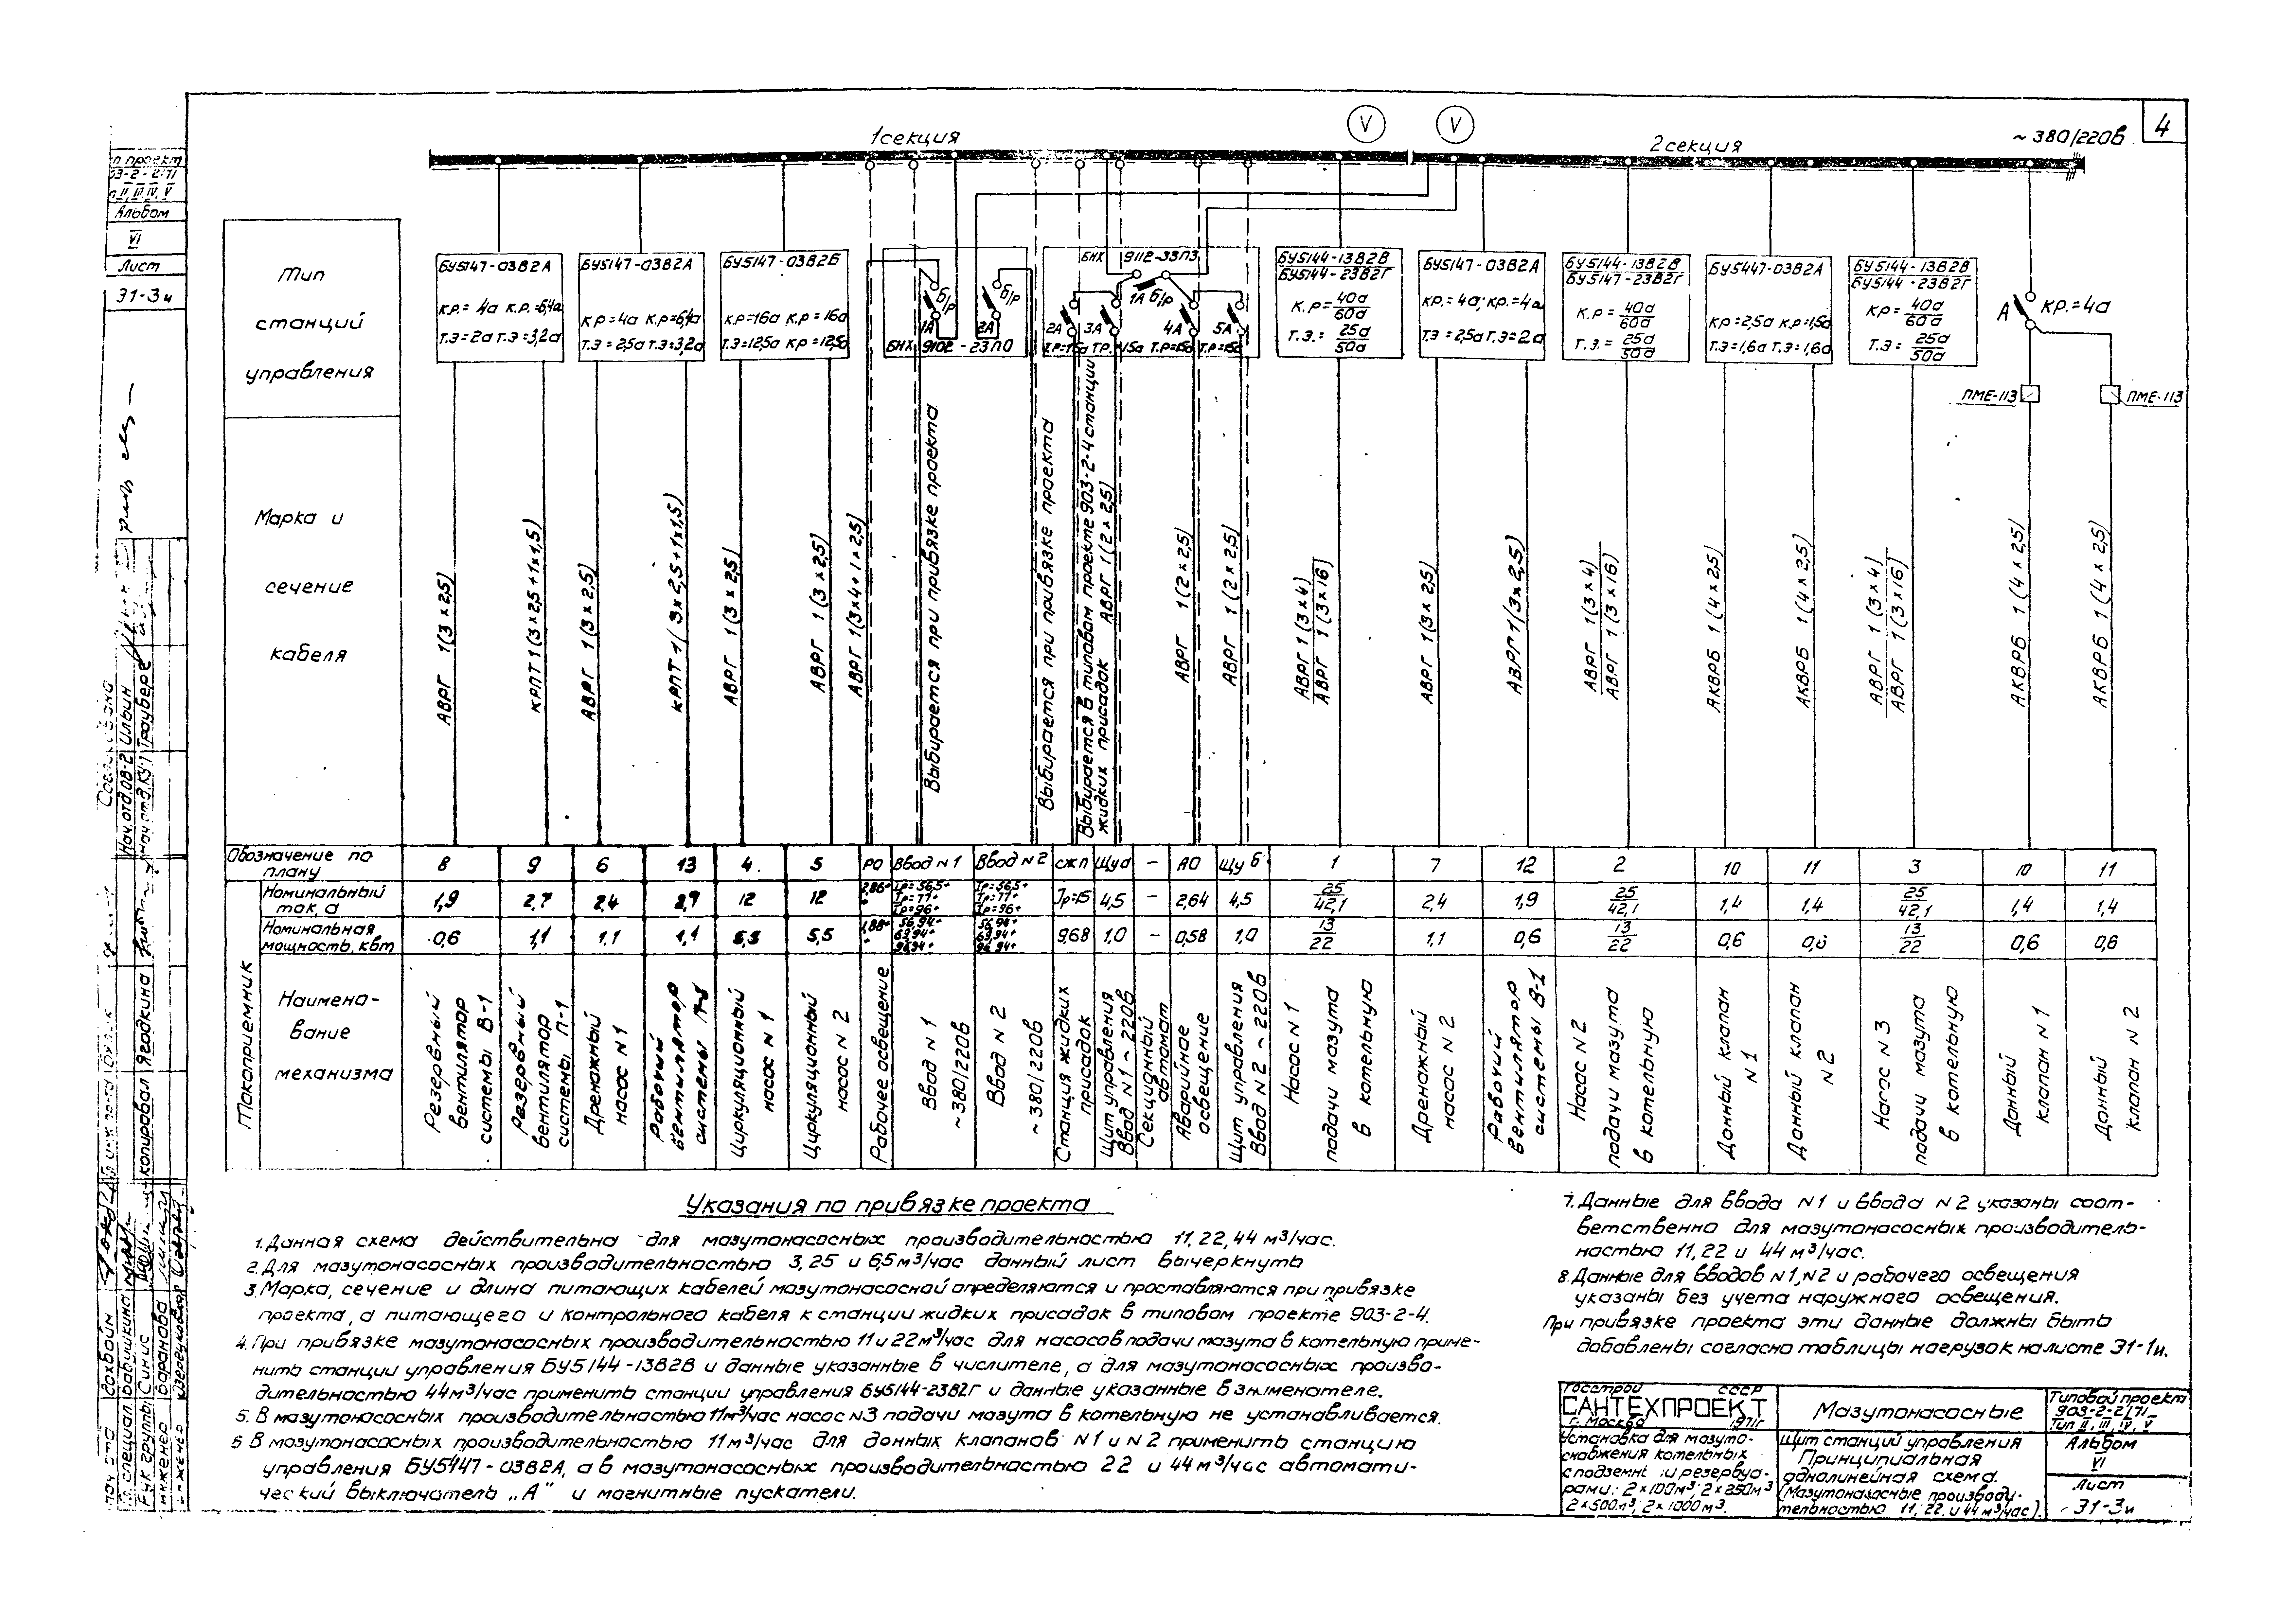 4
1 секция
V
V
2 секция
~ 380/220В
п проект
03-2-2/71
п II, III, IV, V
Альбом
VI
Лист
Э1-3и
Тип
станций
управления
БУ5147-03В2А
к.р.= 4а к.р.=6,4а
Т.Э=2а Т.Э=3,2а
БУ5147-03В2А
к.р=4а к.р=6,4а
Т.Э=2,5а Т.Э=3,2а
БУ5147-03В2Б
к.р=16а к.р=16а
Т.Э=12,5а к.р=12,5а
б/р
1А
б/р
2А
БНХ 9102-23П0
БНХ 9112-33П3
1А б/р
2А 3А 4А 5А
БУ5144-13В2В
БУ5144-23В2Г
к.р=40а/60а
Т.Э.=25а/50а
БУ5147-03В2А
к.р.=4а; к.р.=4а
Т.Э=2,5а Т.Э=2а
БУ5144-13В2В
БУ5147-23В2Г
к.р=40а/60а
Т.Э.=25а/50а
БУ5447-03В2А
к.р=2,5а к.р=1,5а
Т.Э=1,6а Т.Э=1,6а
БУ5144-13В2В
БУ5144-23В2Г
к.р=40а/60а
Т.Э=25а/50а
А
к.р.=4а
ПМЕ-113
ПМЕ-113
Марка и
сечение
кабеля
АВРГ 1(3×2,5)
КРПТ 1(3×2,5+1×1,5)
АВРГ 1(3×2,5)
КРПТ 1(3×2,5+1×1,5)
АВРГ 1(3×2,5)
АВРГ 1(3×2,5)
АВРГ 1(3×4+1×2,5)
Выбирается при привязке проекта
Выбирается при привязке проекта
Выбирается в типовом проекте 903-2-4 станции
жидких присадок АВРГ 1(2×2,5)
АВРГ 1(2×2,5)
АВРГ 1(2×2,5)
АВРГ 1(3×4)
АВРГ 1(3×16)
АВРГ 1(3×2,5)
АВРГ 1(3×2,5)
АВРГ 1(3×4)
АВРГ 1(3×16)
АКВРБ 1(4×2,5)
АКВРБ 1(4×2,5)
АВРГ 1(3×4)
АВРГ 1(3×16)
АКВРБ 1(4×2,5)
АКВРБ 1(4×2,5)
Обозначение по плану 8 9 6 13 4. 5 РО Ввод N1 Ввод N2 СЖП ЩУа – АО ЩУб 1 7 12 2 10 11 3 10 11
Номинальный ток, а 1,9 2,7 2,4 2,7 12 12 2,86* Iр=56,5* Iр=77* Iр=96* Iр=56,5* Iр=77* Iр=96* Iр=15 4,5 – 2,64 4,5 25/42,1 2,4 1,9 25/42,1 1,4 1,4 25/42,1 1,4 1,4
Номинальная мощность, квт 0,6 1,1 1,1 1,1 5,5 5,5 1,88* 56,94* 69,94* 96,94* 56,94* 69,94* 96,94* 9,68 1,0 – 0,58 1,0 13/22 1,1 0,6 13/22 0,6 0,6 13/22 0,6 0,6
Токоприемник
Наимено-
вание
механизма
Резервный вентилятор системы В-1
Резервный вентилятор системы П-1
Дренажный насос N1
Рабочий вентилятор системы П-1
Циркуляционный насос N1
Циркуляционный насос N2
Рабочее освещение
Ввод N1 ~380/220В
Ввод N2 ~380/220В
Станция жидких присадок
Щит управления Ввод N1 ~ 220В
Секционный автомат
Аварийное освещение
Щит управления Ввод N2 ~ 220В
Насос N1 подачи мазута в котельную
Дренажный насос N2
Рабочий вентилятор системы В-1
Насос N2 подачи мазута в котельную
Донный клапан N1
Донный клапан N2
Насос N3 подачи мазута в котельную
Донный клапан N1
Донный клапан N2
Указания по привязке проекта
1. Данная схема действительна для мазутонасосных производительностью 11, 22, 44 м³/час.
2. Для мазутонасосных производительностью 3, 25 и 6,5 м³/час данный лист вычеркнуть
3. Марка, сечение и длина питающих кабелей мазутонасосной определяются и проставляются при привязке
проекта, а питающего и контрольного кабеля к станции жидких присадок в типовом проекте 903-2-4.
4. При привязке мазутонасосных производительностью 11 и 22 м³/час для насосов подачи мазута в котельную приме-
нить станции управления БУ5144-13В2В и данные указанные в числителе, а для мазутонасосных произво-
дительностью 44 м³/час применить станции управления БУ5144-23В2Г и данные указанные в знаменателе.
5. В мазутонасосных производительностью 11 м³/час насос N3 подачи мазута в котельную не устанавливается.
6 В мазутонасосных производительностью 11 м³/час для донных клапанов N1 и N2 применить станцию
управления БУ5447-03В2А, а в мазутонасосных производительностью 22 и 44 м³/час автомати-
ческий выключатель „А" и магнитные пускатели.
7. Данные для ввода N1 и ввода N2 указаны соот-
ветственно для мазутонасосных производитель-
ностью 11, 22 и 44 м³/час.
8. Данные для вводов N1, N2 и рабочего освещения
указаны без учета наружного освещения.
При привязке проекта эти данные должны быть
добавлены согласно таблицы нагрузок на листе Э1-1и.
Госстрой СССР
САНТЕХПРОЕКТ
г. Москва 1971г
Мазутонасосные
Типовой проект
903-2-2/71
Тип II, III, IV, V
Установка для мазуто-
снабжения котельных
с подземн и резервуа-
рами: 2×100м³; 2×250м³
2×500м³; 2×1000м³.
Щит станций управления
Принципиальная
однолинейная схема.
(Мазутонасосные производи-
тельностью 11, 22 и 44 м³/час).
Альбом
VI
Лист
Э1-3и